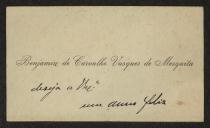 Benjamim de Carvalho Vasques de Mesquita
deseja a V. Ex.ª
um anno feliz